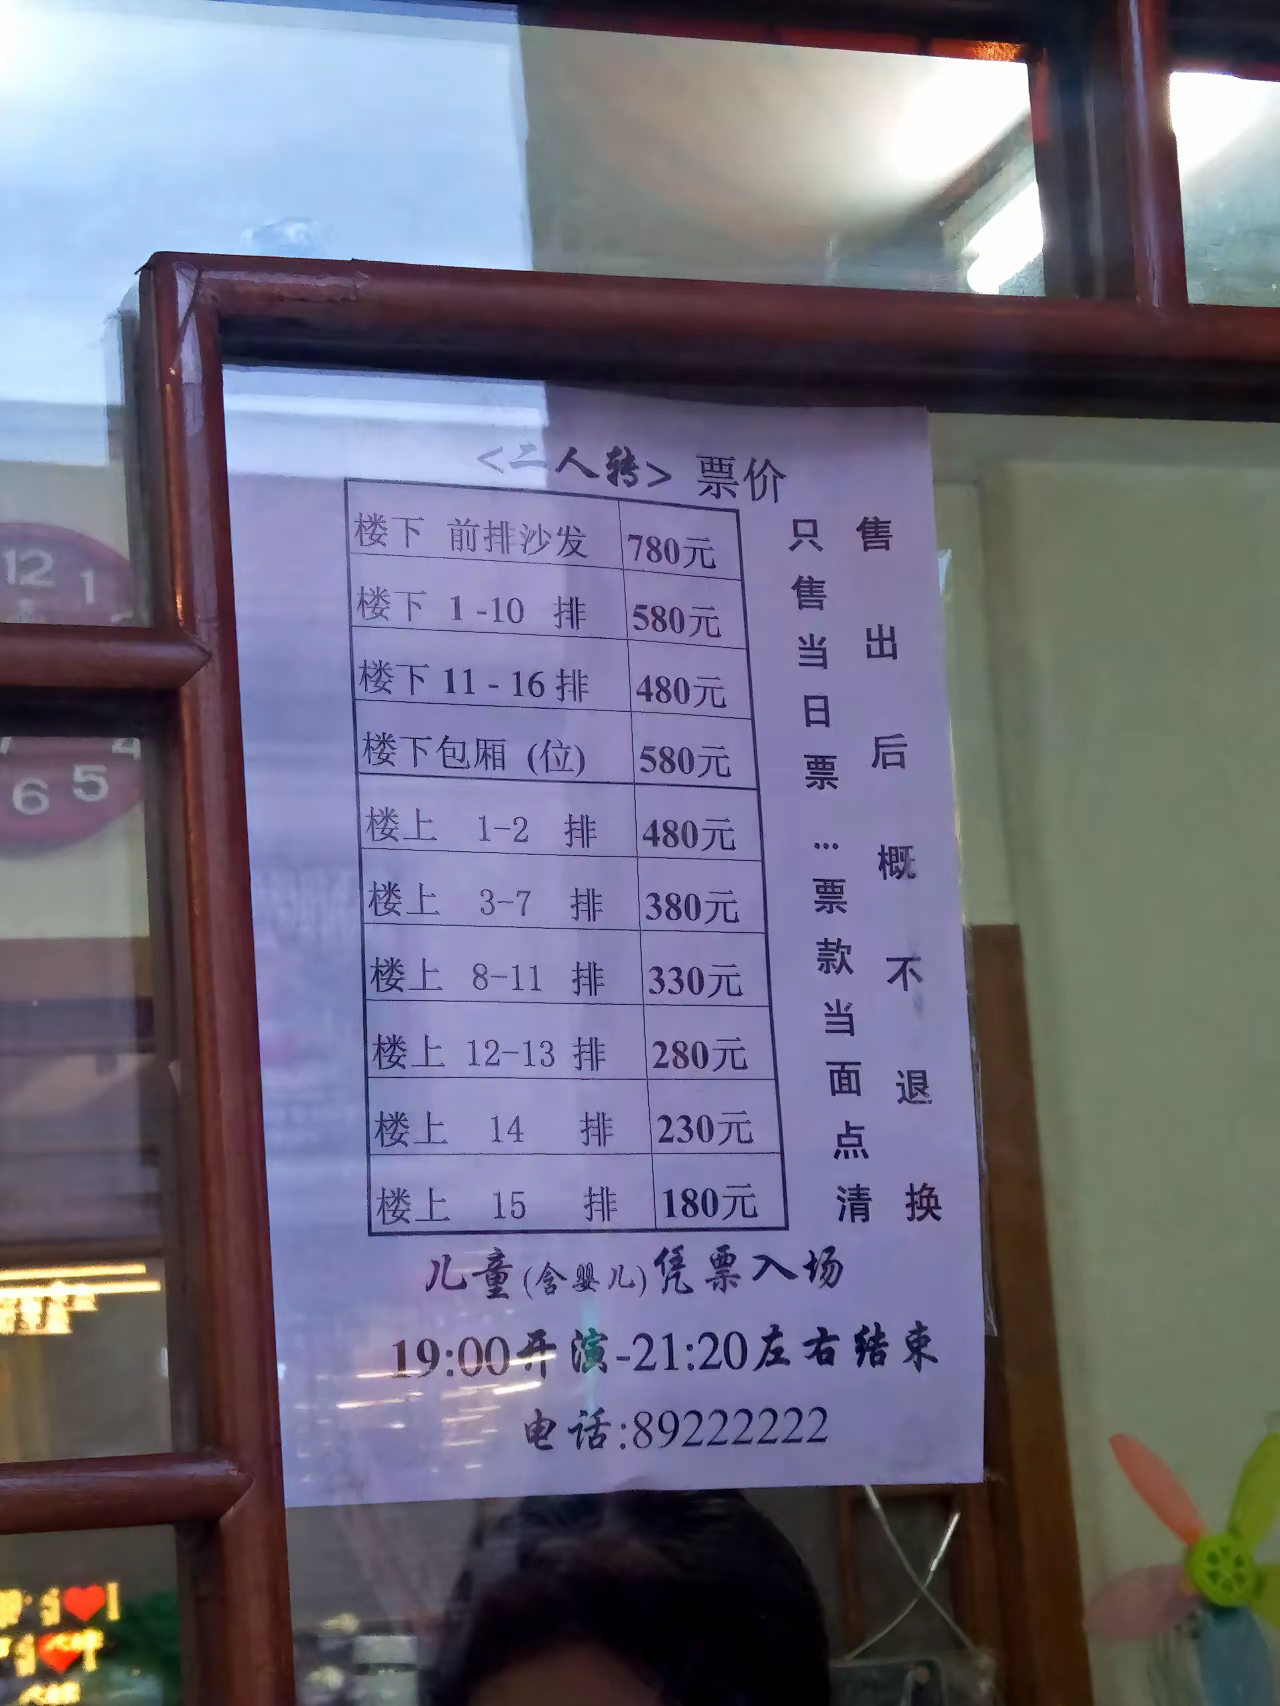 <二人转> 票价
楼下 前排沙发 780元
楼下 1-10 排 580元
楼下 11-16 排 480元
楼下包厢 (位) 580元
楼上 1-2 排 480元
楼上 3-7 排 380元
楼上 8-11 排 330元
楼上 12-13 排 280元
楼上 14 排 230元
楼上 15 排 180元
只售当日票…票款当面点清
售出后概不退换
儿童(含婴儿)凭票入场
19:00开演-21:20左右结束
电话:89222222
12
1
4
5
6